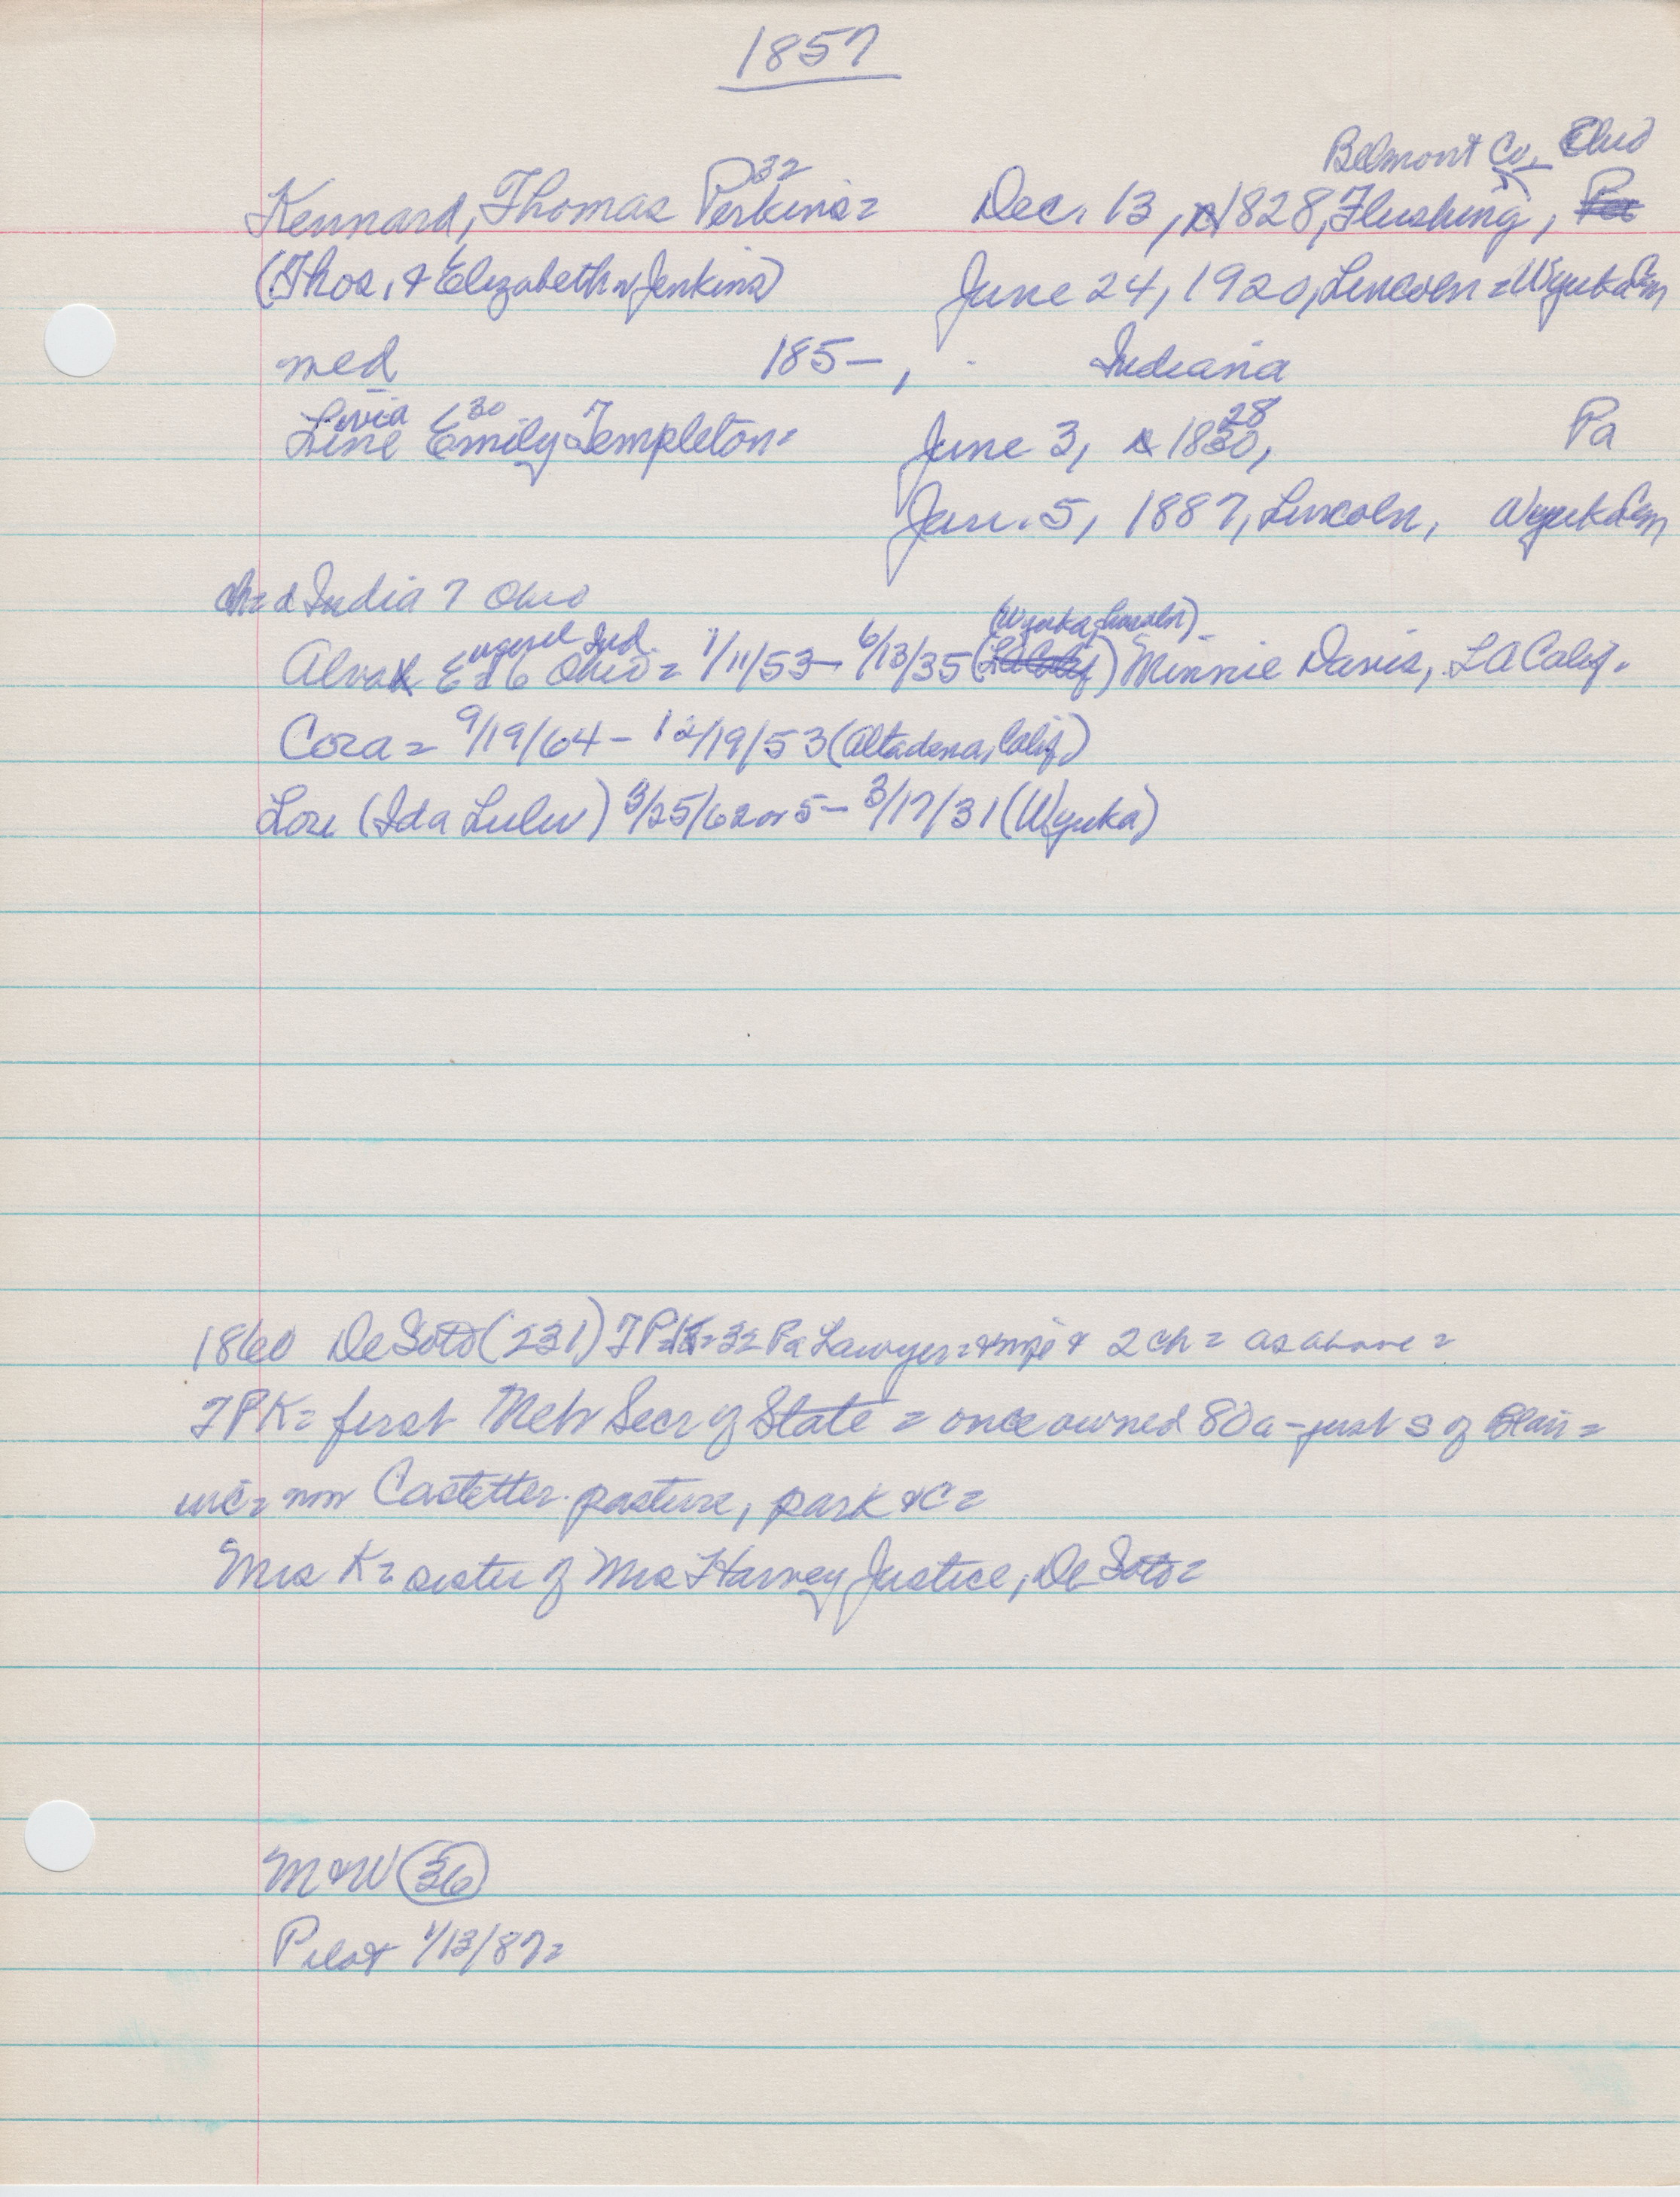 1857
Belmont Co. Ohio
32
Kennard, Thomas Perkins= Dec. 13, 1828, Flushing, Pa
(Thos. & Elizabeth Jenkins) June 24, 1920, Lincoln = Wyuka Cem
med 185-, Indiana
via 30 28
Line Emily Templeton= June 3, 1830, Pa
Jan. 5, 1887, Lincoln, Wyuka Cem
ch= d India 7 Ohio
Ind. (Wyuka, Lincoln)
Alva E 6 Ohio = 1/11/53- 6/13/35 (LA Calif) Minnie Davis, LA Calif.
Cora = 9/19/64 - 12/19/53 (Altadena, Calif)
Lou (Ida Lulu) 3/25/62 or 5 - 3/17/31 (Wyuka)
1860 De Soto (231) TPK= 32 Pa Lawyer = & 2 ch = as above =
TPK= first Neb Secr of State = once owned 80a - just S of Blair =
Castetter pasture, park &c =
Mrs K= sister of Mrs Harvey Justice, De Soto=
M&W 36
Pilot 1/13/87=